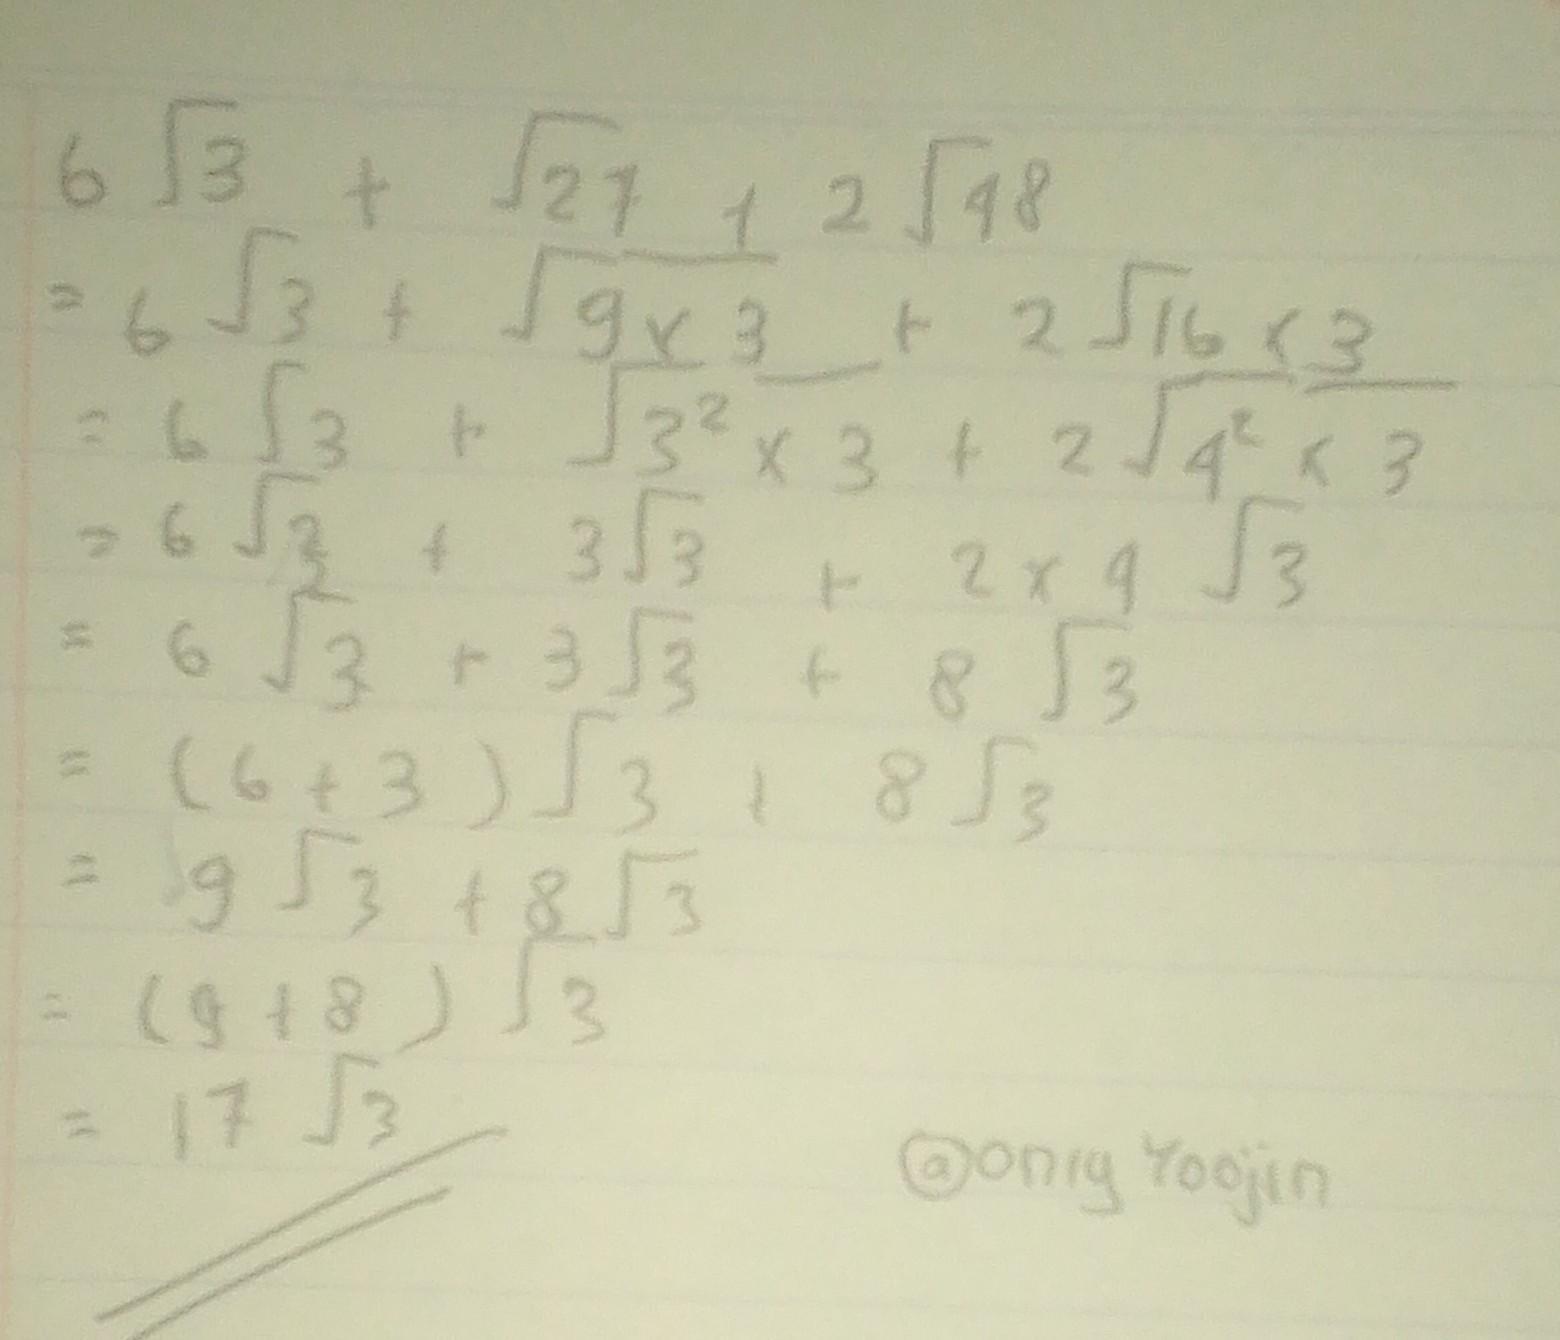 6 √3 + √27 + 2 √48
= 6 √3 + √9 x 3 + 2 √16 x 3
= 6 √3 + √3² x 3 + 2 √4² x 3
= 6 √3 + 3 √3 + 2 x 4 √3
= 6 √3 + 3 √3 + 8 √3
= (6 + 3) √3 + 8 √3
= 9 √3 + 8 √3
= (9 + 8) √3
= 17 √3
@onig Yoojin